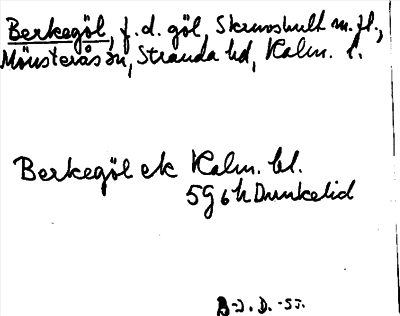 Berkegöl, f.d. göl, Skruvshult m.fl.,
Mönsterås sn, Stranda hd, Kalm. l.
Berkegöl ek Kalm. bl.
5G 6h Drunkelid
B-J. D. -55.